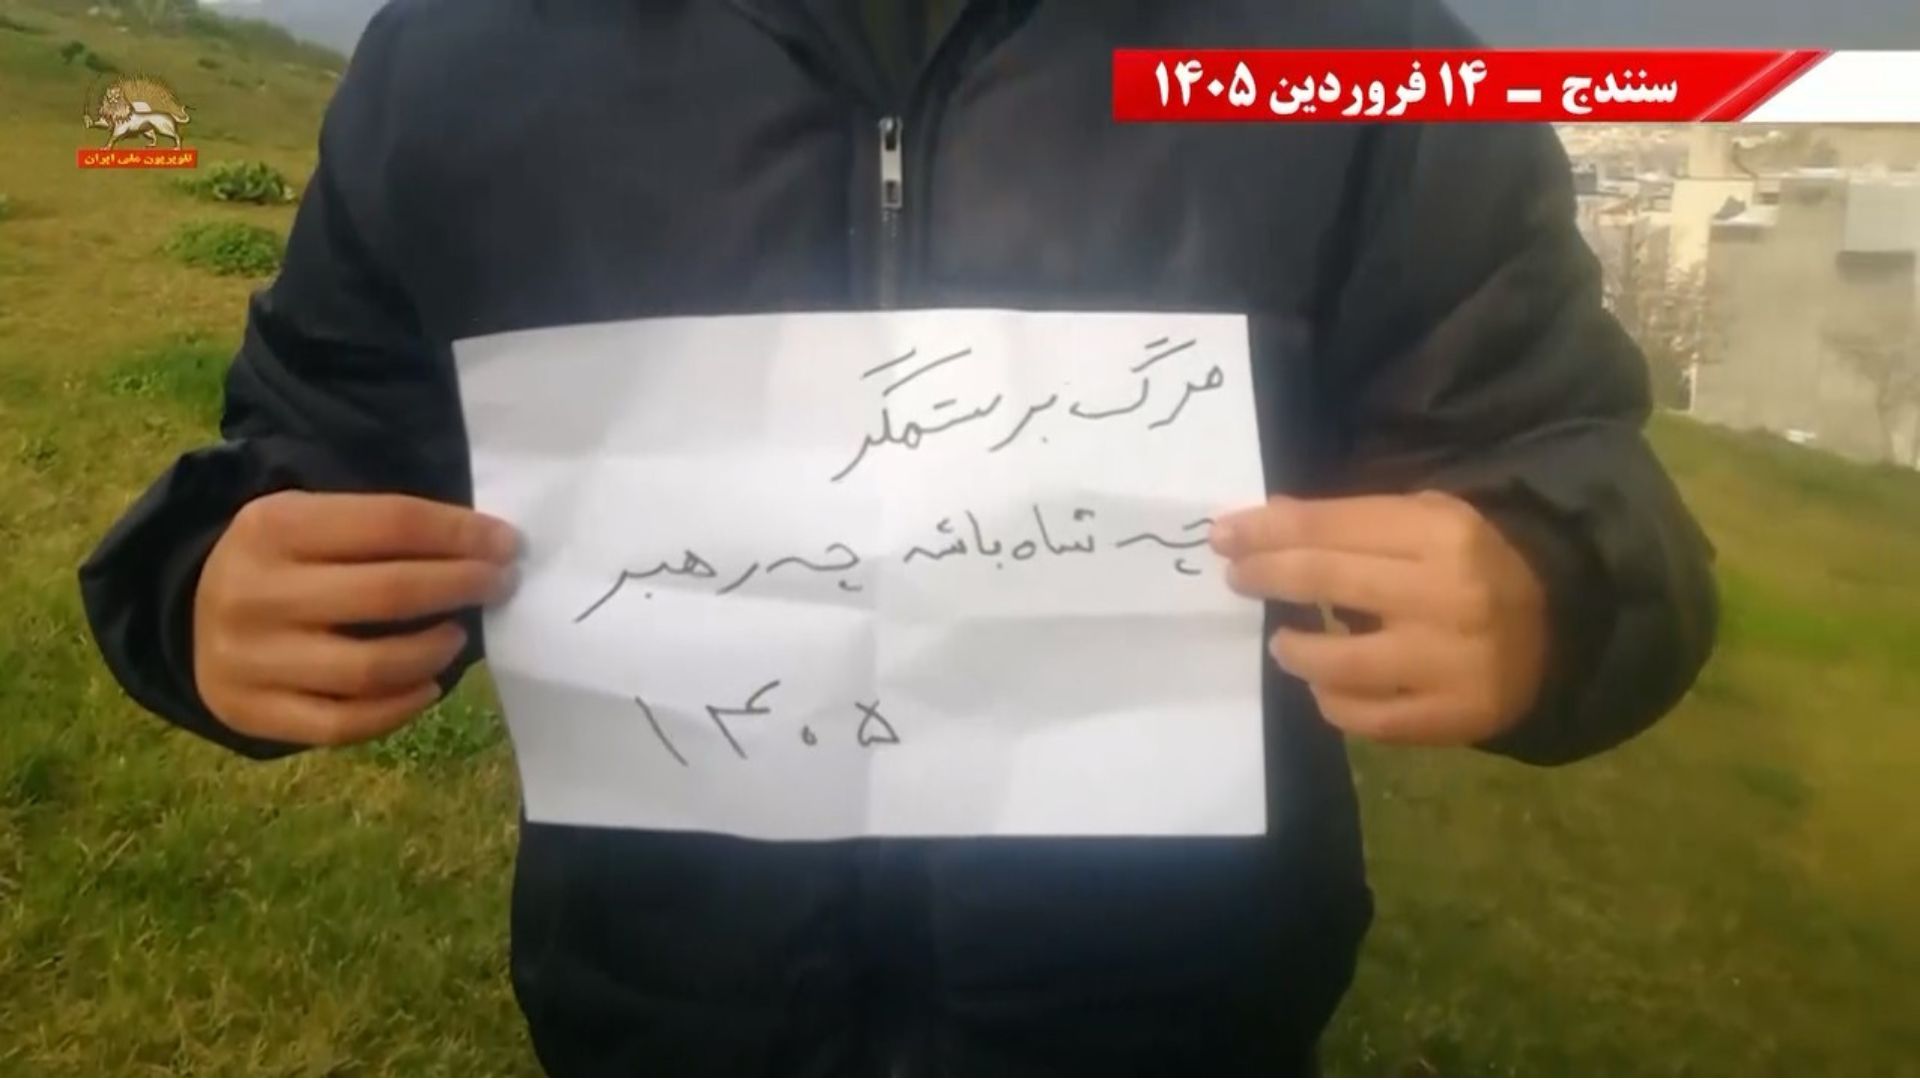 سنندج - ۱۴ فروردین ۱۴۰۵
تلویزیون ملی ایران
مرگ بر ستمگر
چه شاه باشه چه رهبر
۱۴۰۵